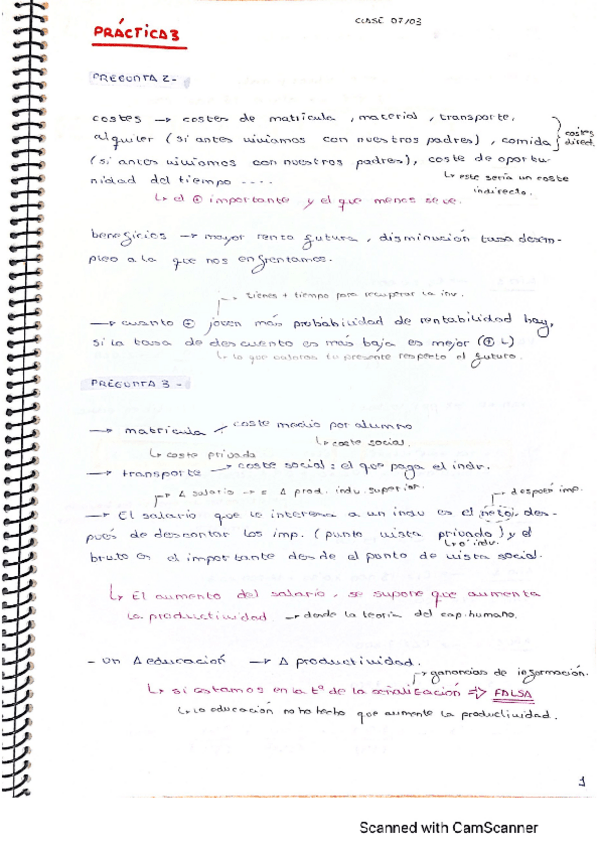 PRÁCTICA 3
CLASE 07/03
PREGUNTA 2-
costes → costes de matricula, material, transporte,
alquiler (si antes viviamos con nuestros padres), comida
costes direct.
(si antes viviamos con nuestros padres), coste de oportu-
nidad del tiempo ....
↳ este seria un coste indirecto.
↳ el ⊕ importante y el que menos se ve.
beneficios → mayor renta futura, disminución tasa desem-
pleo a la que nos enfrentamos.
→ tienes + tiempo para recuperar la inv.
→ cuanto ⊕ joven más probabilidad de rentabilidad hay,
si la tasa de descuento es más baja es mejor (⊕ L)
↳ lo que valoras tu presente respecto el futuro.
PREGUNTA 3-
→ matricula
coste medio por alumno
↳ coste social.
↳ coste privada
→ transporte → coste social: el que paga el indv.
Δ salario → Δ prod. indv. superior.
→ después imp.
→ El salario que le interesa a un indv es el neto, des-
pués de descontar los imp. (punto vista privado) y el
↳ indv.
bruto es el importante desde el punto de vista social.
↳ El aumento del salario, se supone que aumenta
la productividad → desde la teoria del cap. humano.
- un Δ educación → Δ productividad.
→ ganancias de información.
↳ si estamos en la tª de la señalización => FALSA
↳ la educación no ha hecho que aumente la productividad.
1
Scanned with CamScanner